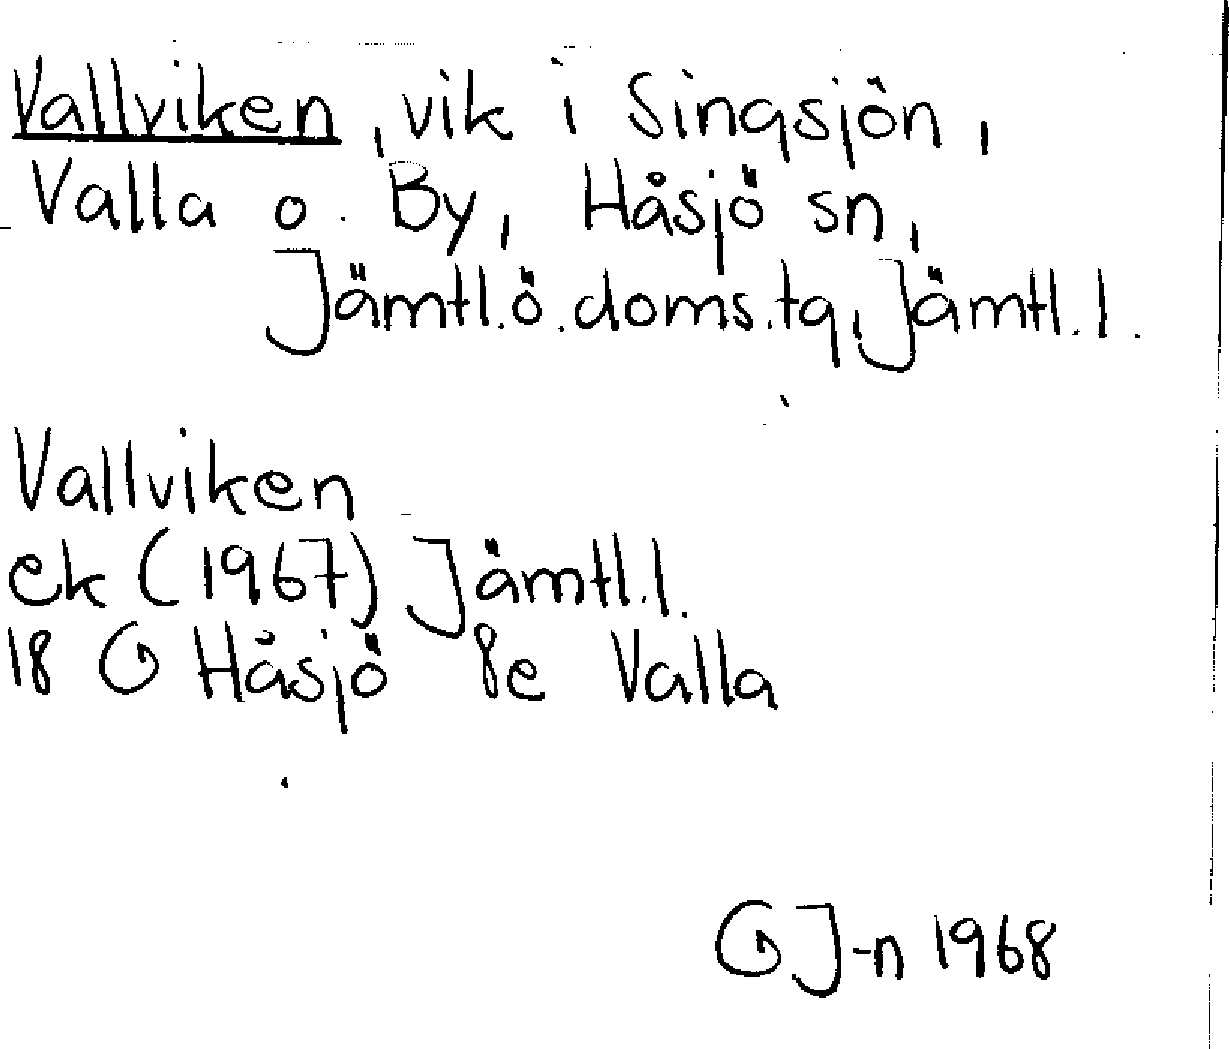 Vallviken, vik i Singsjön,
Valla o. By, Håsjö sn,
Jämtl.ö.doms.tg, Jämtl.l.
Vallviken
ek (1967) Jämtl.l.
18 G Håsjö 8e Valla
G J-n 1968